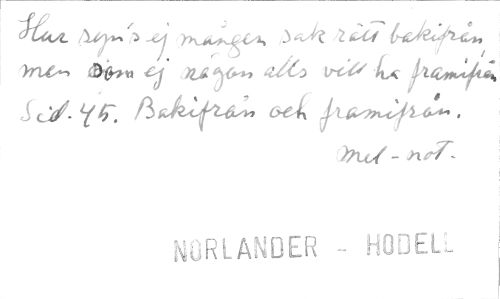 Hur syn's ej mången sak rätt bakifrån,
men som ej någon alls vill ha framifrån
Sid. 45. Bakifrån och framifrån.
Mel-not.
NORLANDER - HODELL